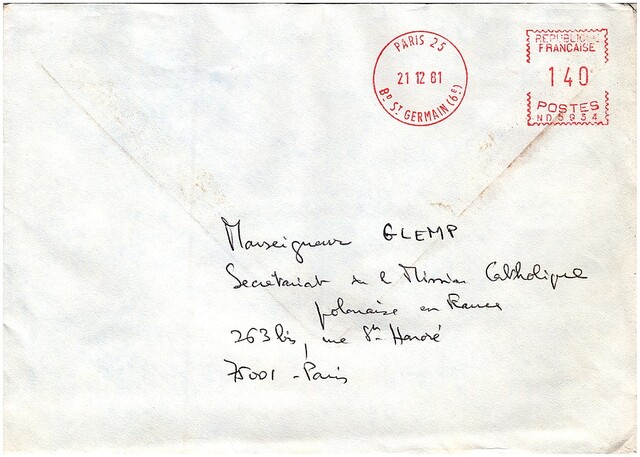 PARIS 25
21 12 81
Bᴰ Sᵀ GERMAIN (6ᵉ)
REPUBLIQUE
FRANCAISE
140
POSTES
ND 5934
Monseigneur GLEMP
Secrétariat de l Mission Catholique
polonaise en France
263 bis, rue St Honoré
75001 - Paris